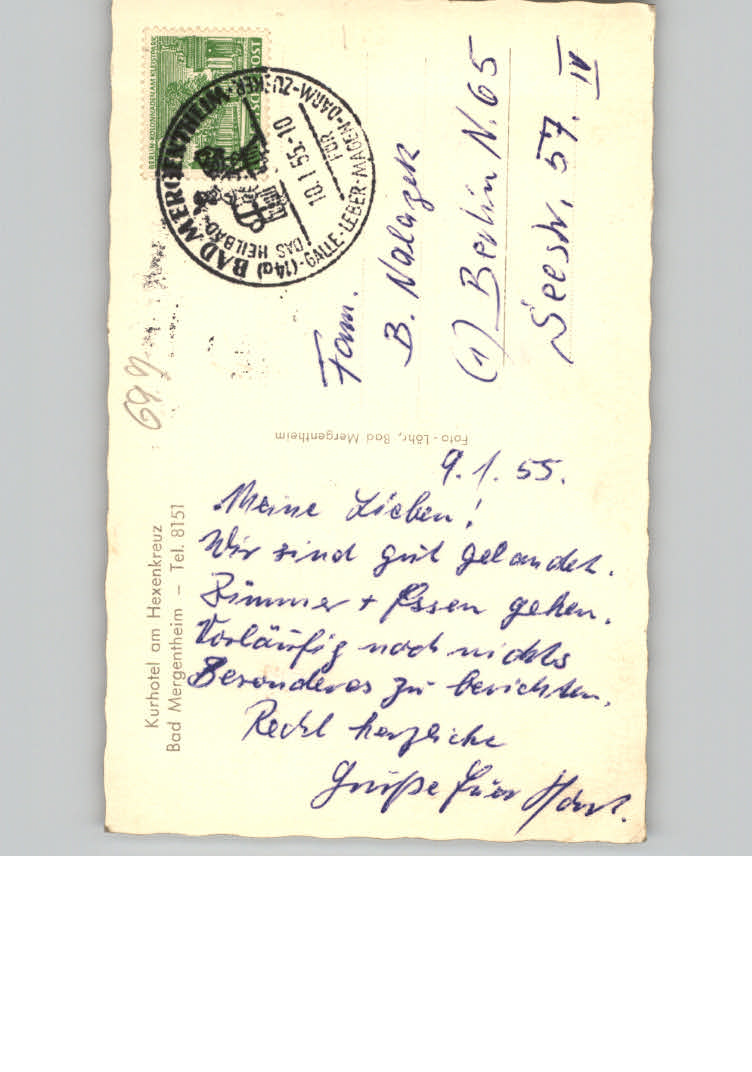 BERLIN-KOLONNADEN AM KLEISTPARK
(14a) BAD MERGENTHEIM
DAS HEILBAD
FÜR
GALLE-LEBER-MAGEN-DARM-ZUCKER
10.1.55.-10
Fam.
B. Nalazek
(1) Berlin N. 65
Seestr. 57. IV
Foto-Löhr, Bad Mergentheim
Kurhotel am Hexenkreuz
Bad Mergentheim – Tel. 8151
9.1.55.
Meine Lieben!
Wir sind gut gelandet.
Zimmer + Essen gehen.
Vorläufig noch nichts
Besonderes zu berichten.
Recht herzliche
Grüße Euer Horst.